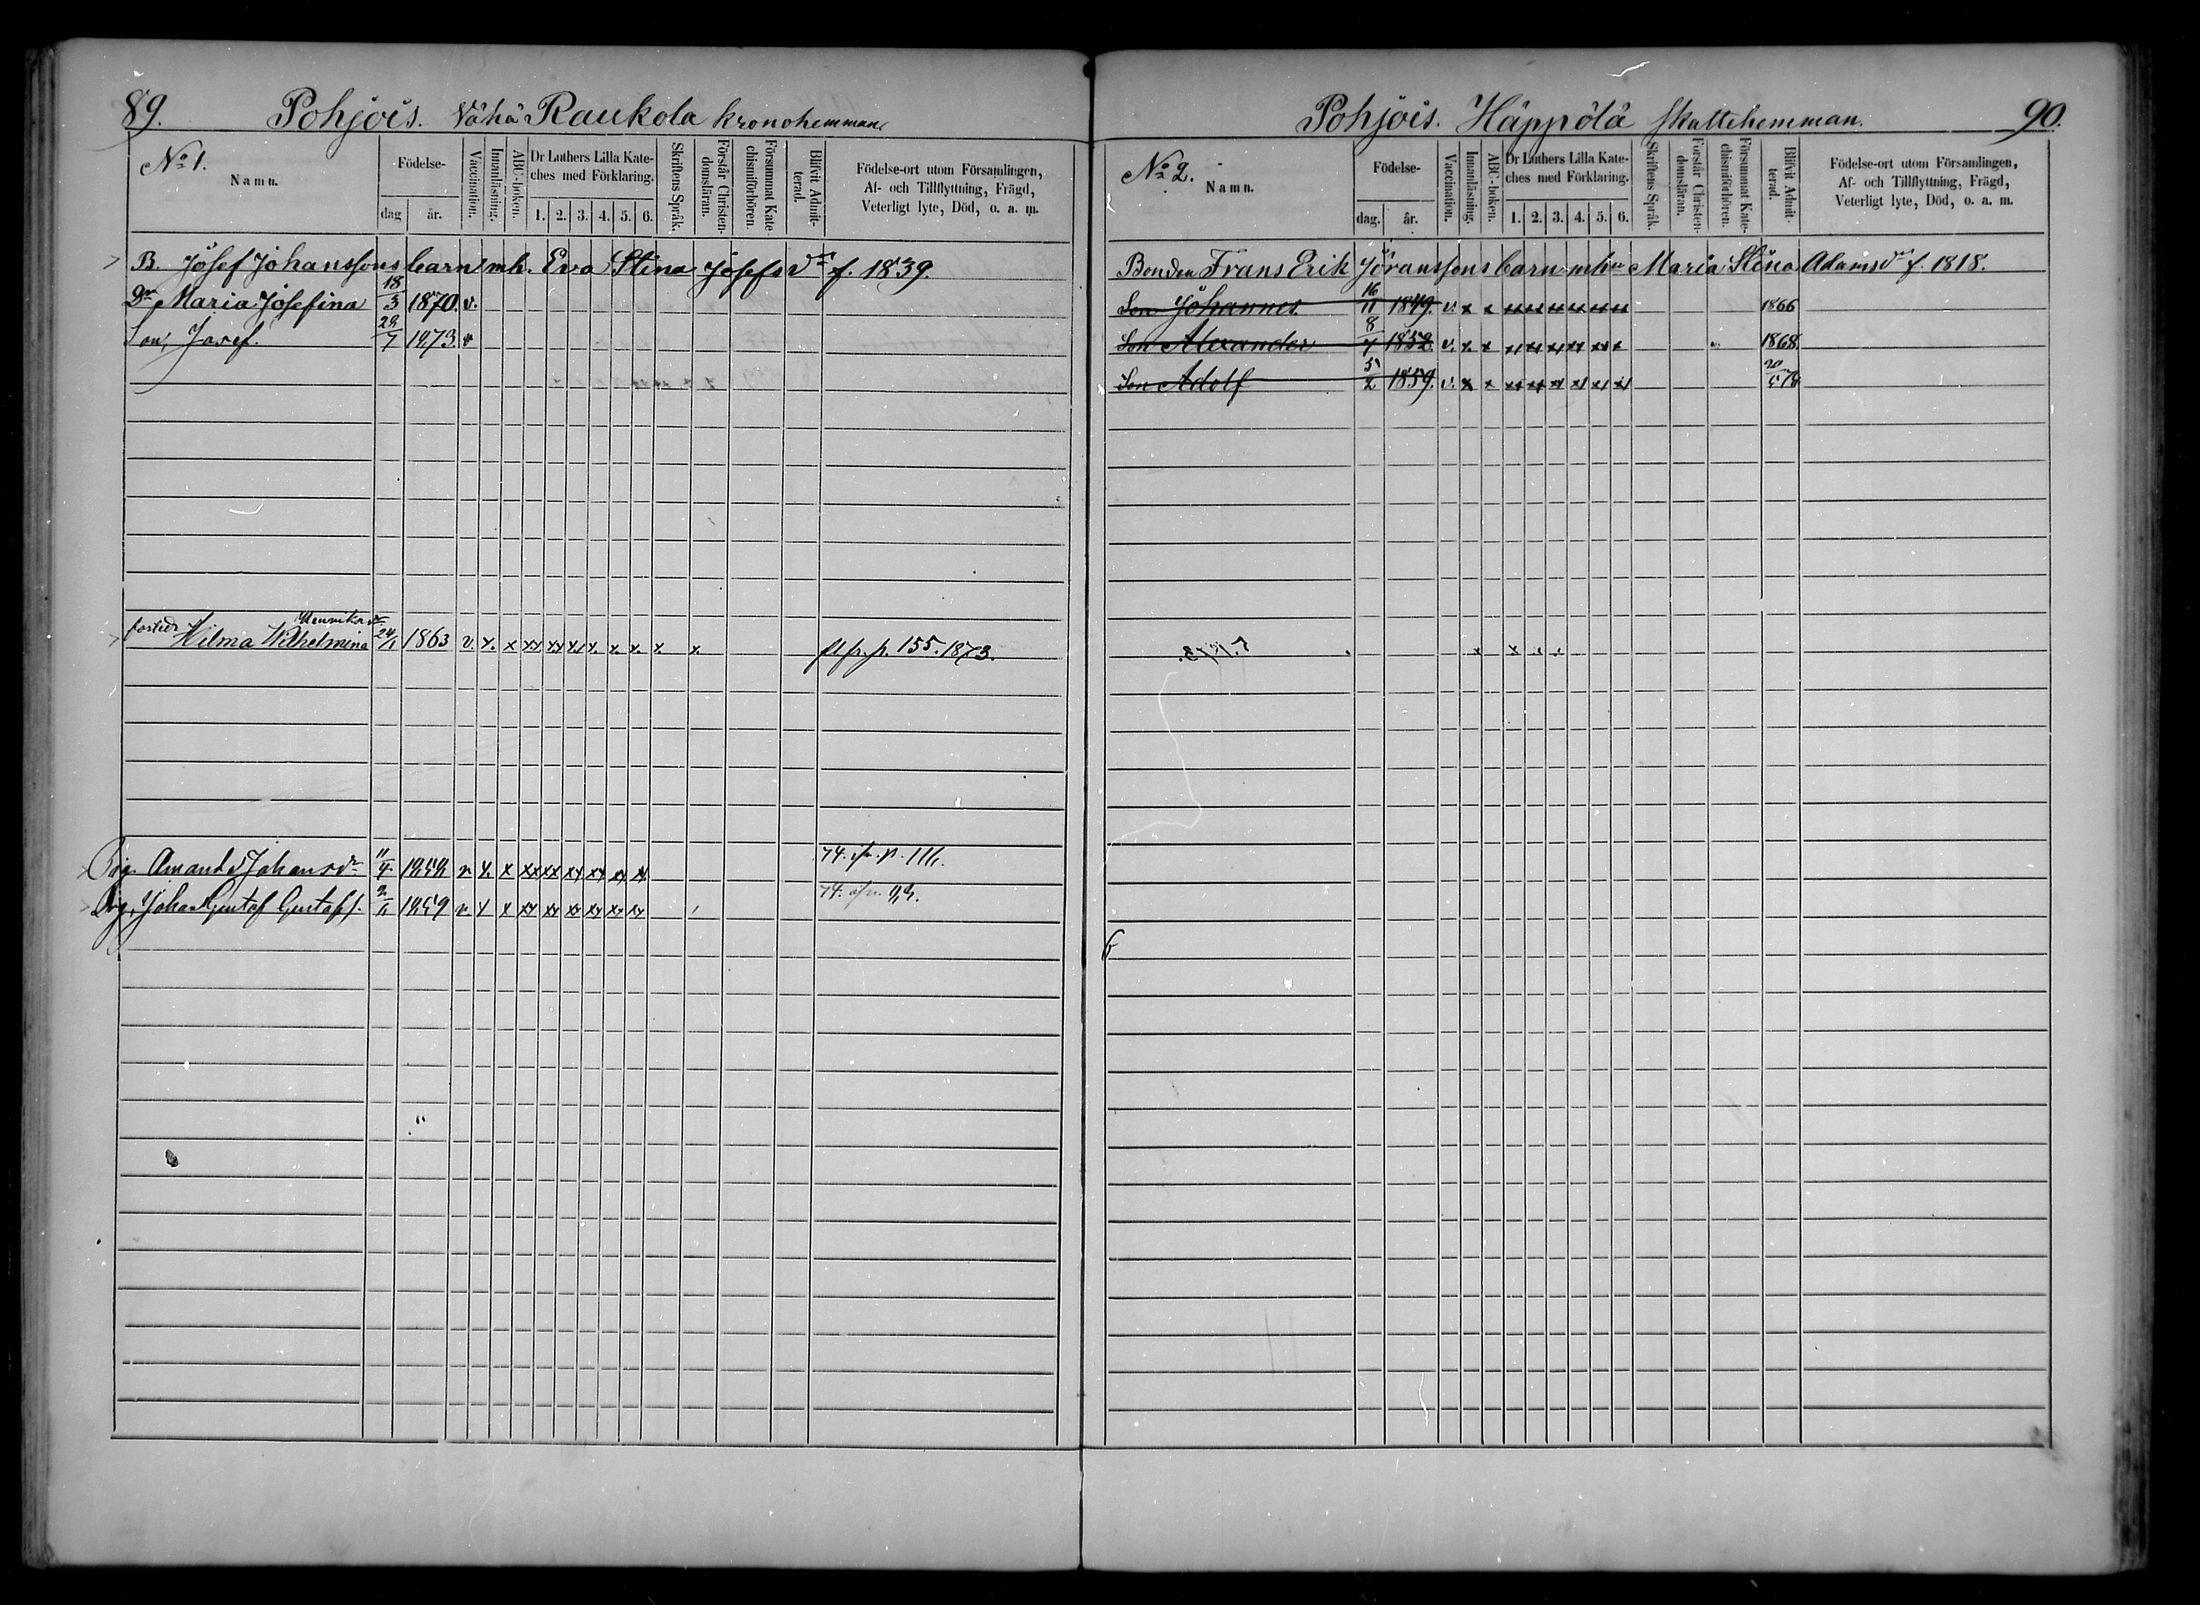 89. Pohjois. Vähä Raukola kronohemman.
No 1.
Namn.
Födelse-
dag
år.
Vaccination.
Innanläsning.
ABC-boken.
Dr Luthers Lilla Kate-
ches med Förklaring.
1. 2. 3. 4. 5. 6.
Skriftens Språk.
Förstår Christen-
domsläran.
Försummat Kate-
chismiförhören.
Blifvit Admit-
terad.
Födelse-ort utom Församlingen,
Af- och Tillflyttning, Frägd,
Veterligt lyte, Död, o. a. m.
B. Josef Johanssons barn mh. Eva Stina Josefsdr f. 1839.
Dr Maria Josefina 18/3 1870. v.
Son, Josef. 29/7 1873. v
Henriksdr
Hilma Wilhelmina 24/1 1863 v. x. x xx xx xx x. x. x. x. fl fr. p. 155. 1873.
Amanda Johansdr 11/4 v. x. x xx xx xx xx xx xx 74. fr. p. 111.
Johan Gustaf Gustafs. 1859 v. x x xx xx xx xx xx xx 74.
Pohjois. Häppölä Skattehemman. 90.
No 2.
Namn.
Födelse-
dag.
år.
Vaccination.
Innanläsning.
ABC-boken.
Dr Luthers Lilla Kate-
ches med Förklaring.
1. 2. 3. 4. 5. 6.
Skriftens Språk.
Förstår Christen-
domsläran.
Försummat Kate-
chismiförhören.
Blifvit Admit-
terad.
Födelse-ort utom Församlingen,
Af- och Tillflyttning, Frägd,
Veterligt lyte, Död, o. a. m.
Bonden Frans Erik Jöranssons barn mhu Maria Stina Adamsdr f. 1818.
Son Johannes 16/11 1849. v. x x xx xx xx xx xx xx 1866
Son Alexander 8/7 1852. v. x. x xx xx xx xx xx x 1868.
Son Adolf 5/2 1859. v. x x xx xx xx xx xx xx